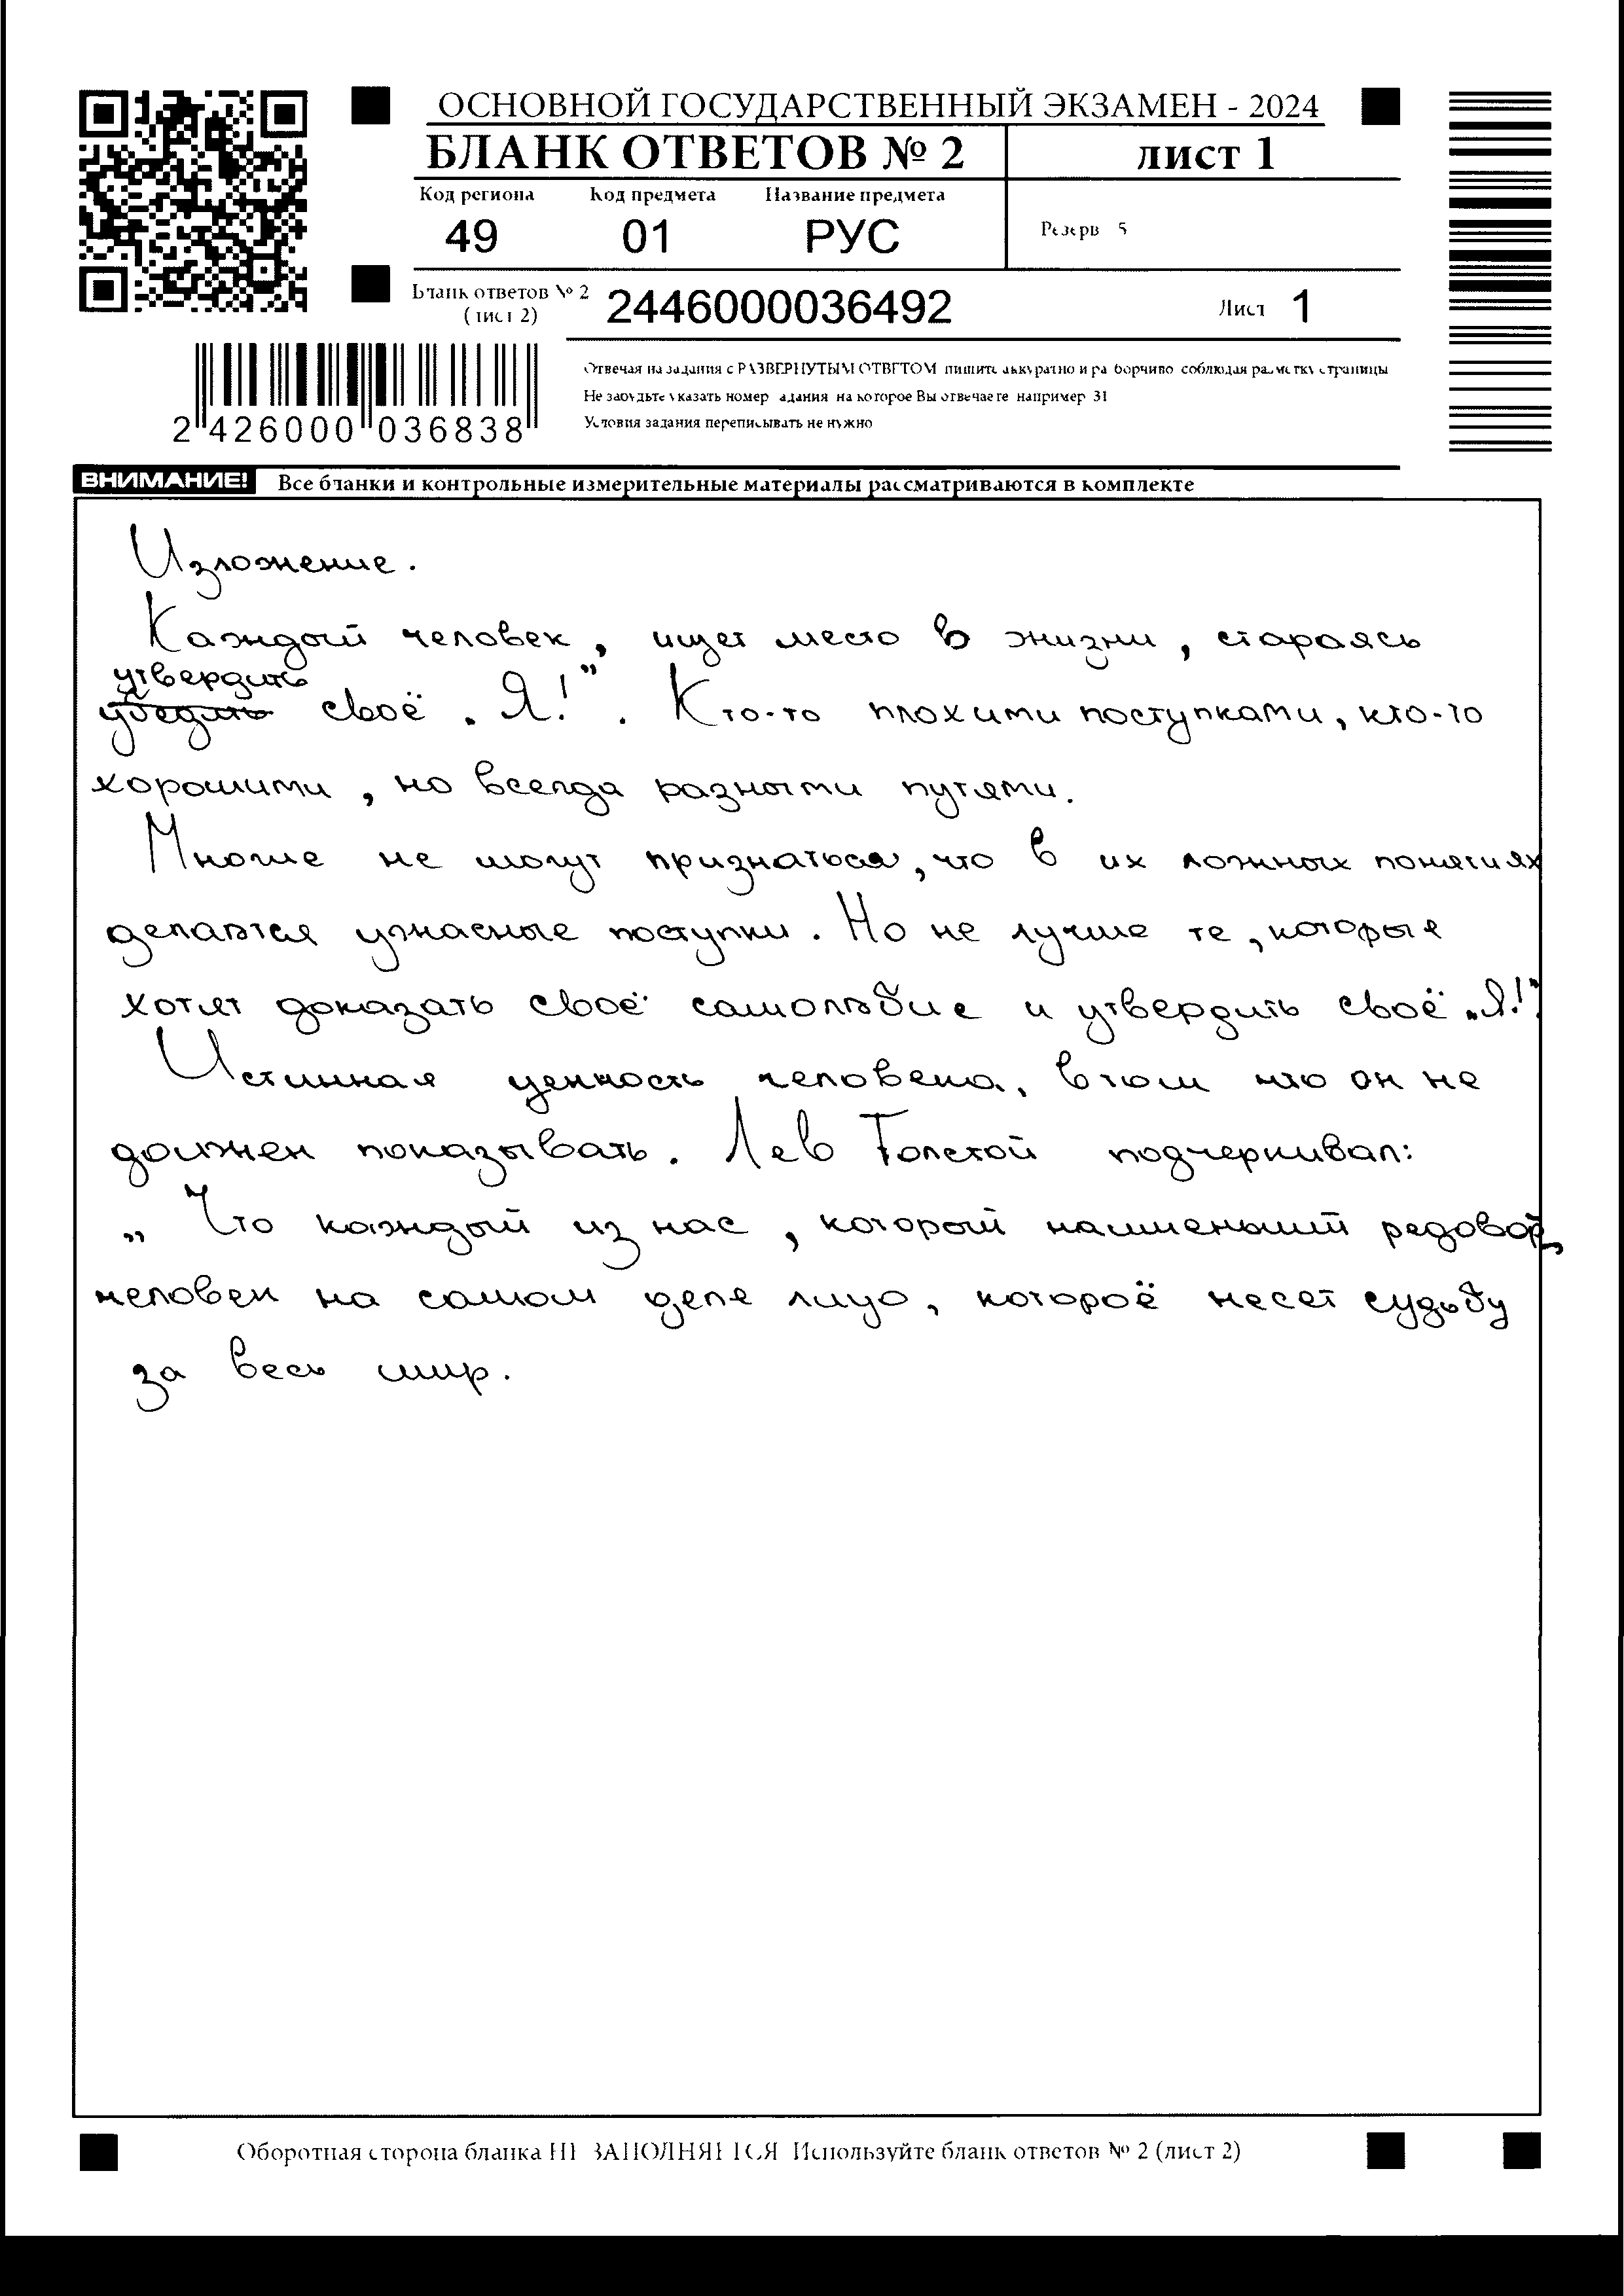 ОСНОВНОЙ ГОСУДАРСТВЕННЫЙ ЭКЗАМЕН - 2024
БЛАНК ОТВЕТОВ № 2 лист 1
Код региона Код предмета Название предмета
49 01 РУС
Резерв 5
Бланк ответов № 2
(лист 2)
2446000036492
Лист 1
2 426000 036838
Отвечая на задания с РАЗВЕРНУТЫМ ОТВЕТОМ пишите аккуратно и разборчиво соблюдая разметку страницы
Не забудьте указать номер задания на которое Вы отвечаете например 31
Условия задания переписывать не нужно
ВНИМАНИЕ! Все бланки и контрольные измерительные материалы рассматриваются в комплекте
Изложение.
Каждый человек, ищет место в жизни, стараясь
утвердить
убедить своё „Я!". Кто-то плохими поступками, кто-то
хорошими, но всегда разными путями.
Многие не могут признаться, что в их ложных понятиях
делаются ужасные поступки. Но не лучше те, которые
хотят доказать своё самолюбие и утвердить своё „Я!".
Истинная ценность человека, в том что он не
должен показывать. Лев Толстой подчеркивал:
„Что каждый из нас, который наименьший редовой,
человек на самом деле лицо, которое несет судьбу
за весь мир.
Оборотная сторона бланка НЕ ЗАПОЛНЯЕТСЯ Используйте бланк ответов № 2 (лист 2)